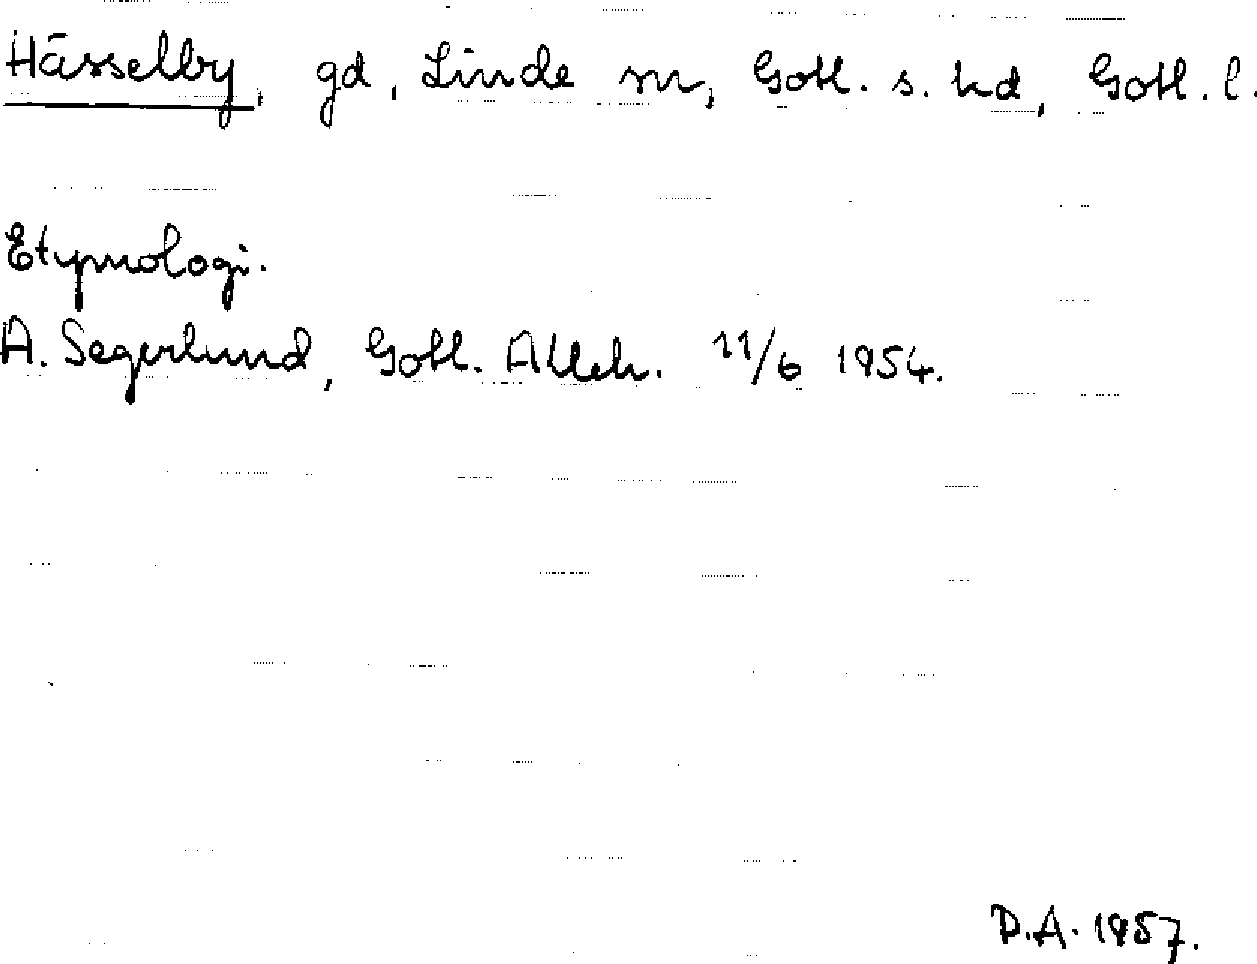 Hässelby, gd, Linde sn, Gotl. s. hd, Gotl. l.
Etymologi.
A. Segerlund, Gotl. Alleh. 11/6 1954.
D.A. 1957.